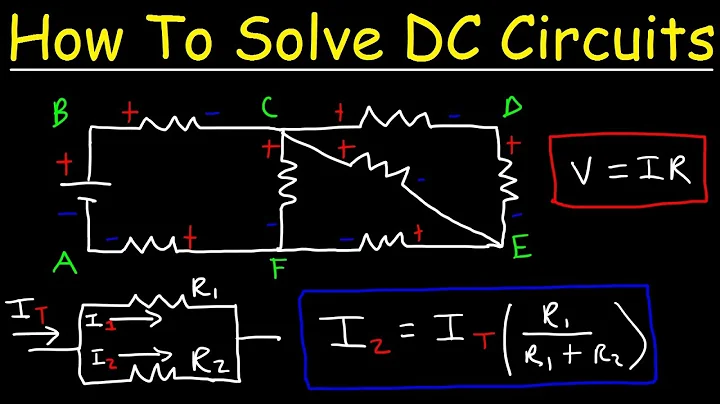 How To Solve DC Circuits
B + - C + - D
+ + + +
V = IR
- -
- - + - + -
A F E
I_T R_1
I_1
I_2 R_2
I_2 = I_T (R_1 / (R_1 + R_2))